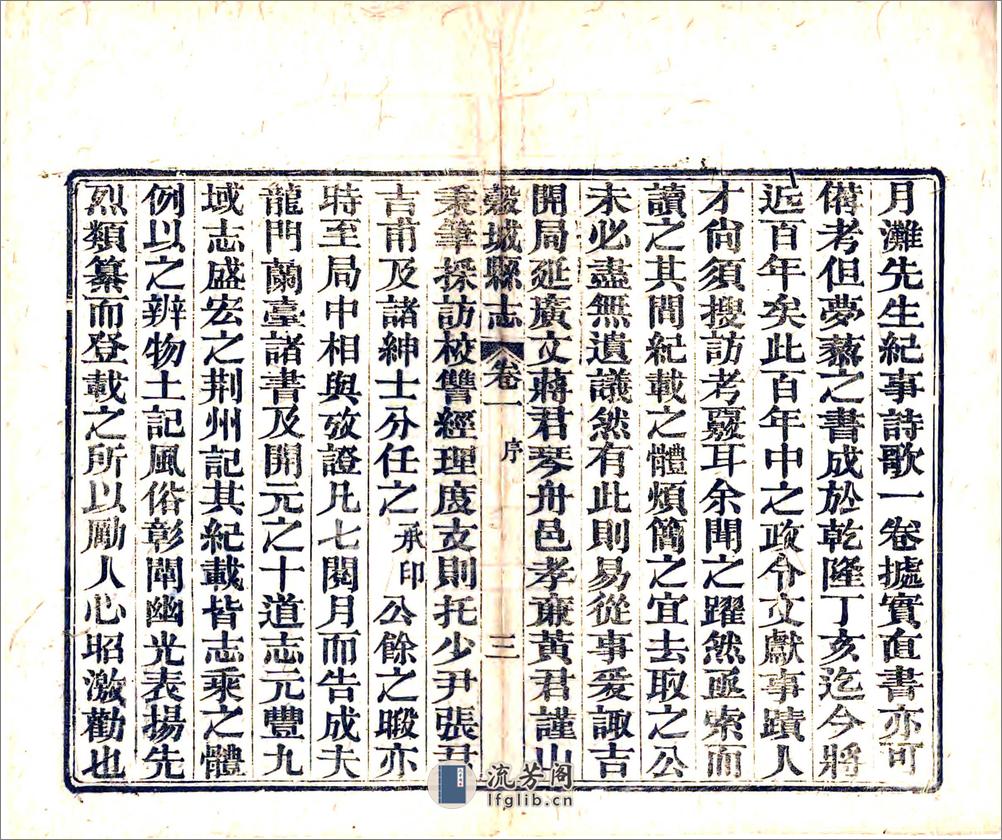 月灘先生紀事詩歌一卷據實直書亦可
備考但夢蓺之書成於乾隆丁亥迄今將
近百年矣此百年中之政令文獻事蹟人
才尙須搜訪考覈耳余聞之躍然亟索而
讀之其間紀載之體煩簡之宜去取之公
未必盡無遺議然有此則易從事爰諏吉
開局延廣文蔣君琴舟邑孝廉黃君謹山
穀城縣志 卷一 序 三
秉筆採訪校讐經理度支則托少尹張君
吉甫及諸紳士分任之承印公餘之暇亦
時至局中相與攷證凡七閱月而告成夫
龍門蘭臺諸書及開元之十道志元豐九
域志盛宏之荆州記其紀載皆志乘之體
例以之辨物土記風俗彰闡幽光表揚先
烈類纂而登載之所以勵人心昭激勸也
流芳阁
lfglib.cn